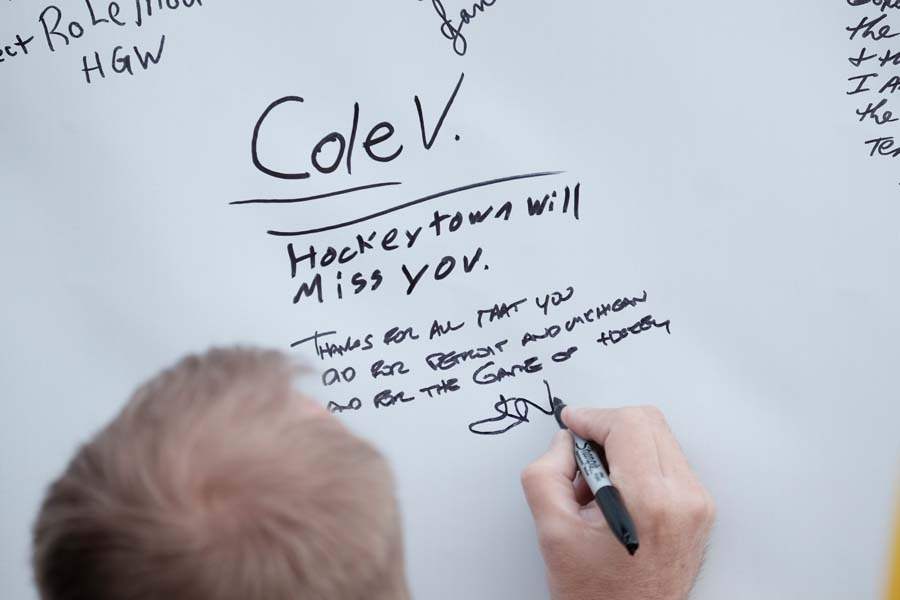 ect RoLe Mod
HGW
Jan
Cole V.
Hockeytown will
Miss you.
THANKS FOR ALL THAT YOU
DID FOR DETROIT AND MICHIGAN
AND FOR THE GAME OF HOCKEY
the
I A
the
Te
Sharpie